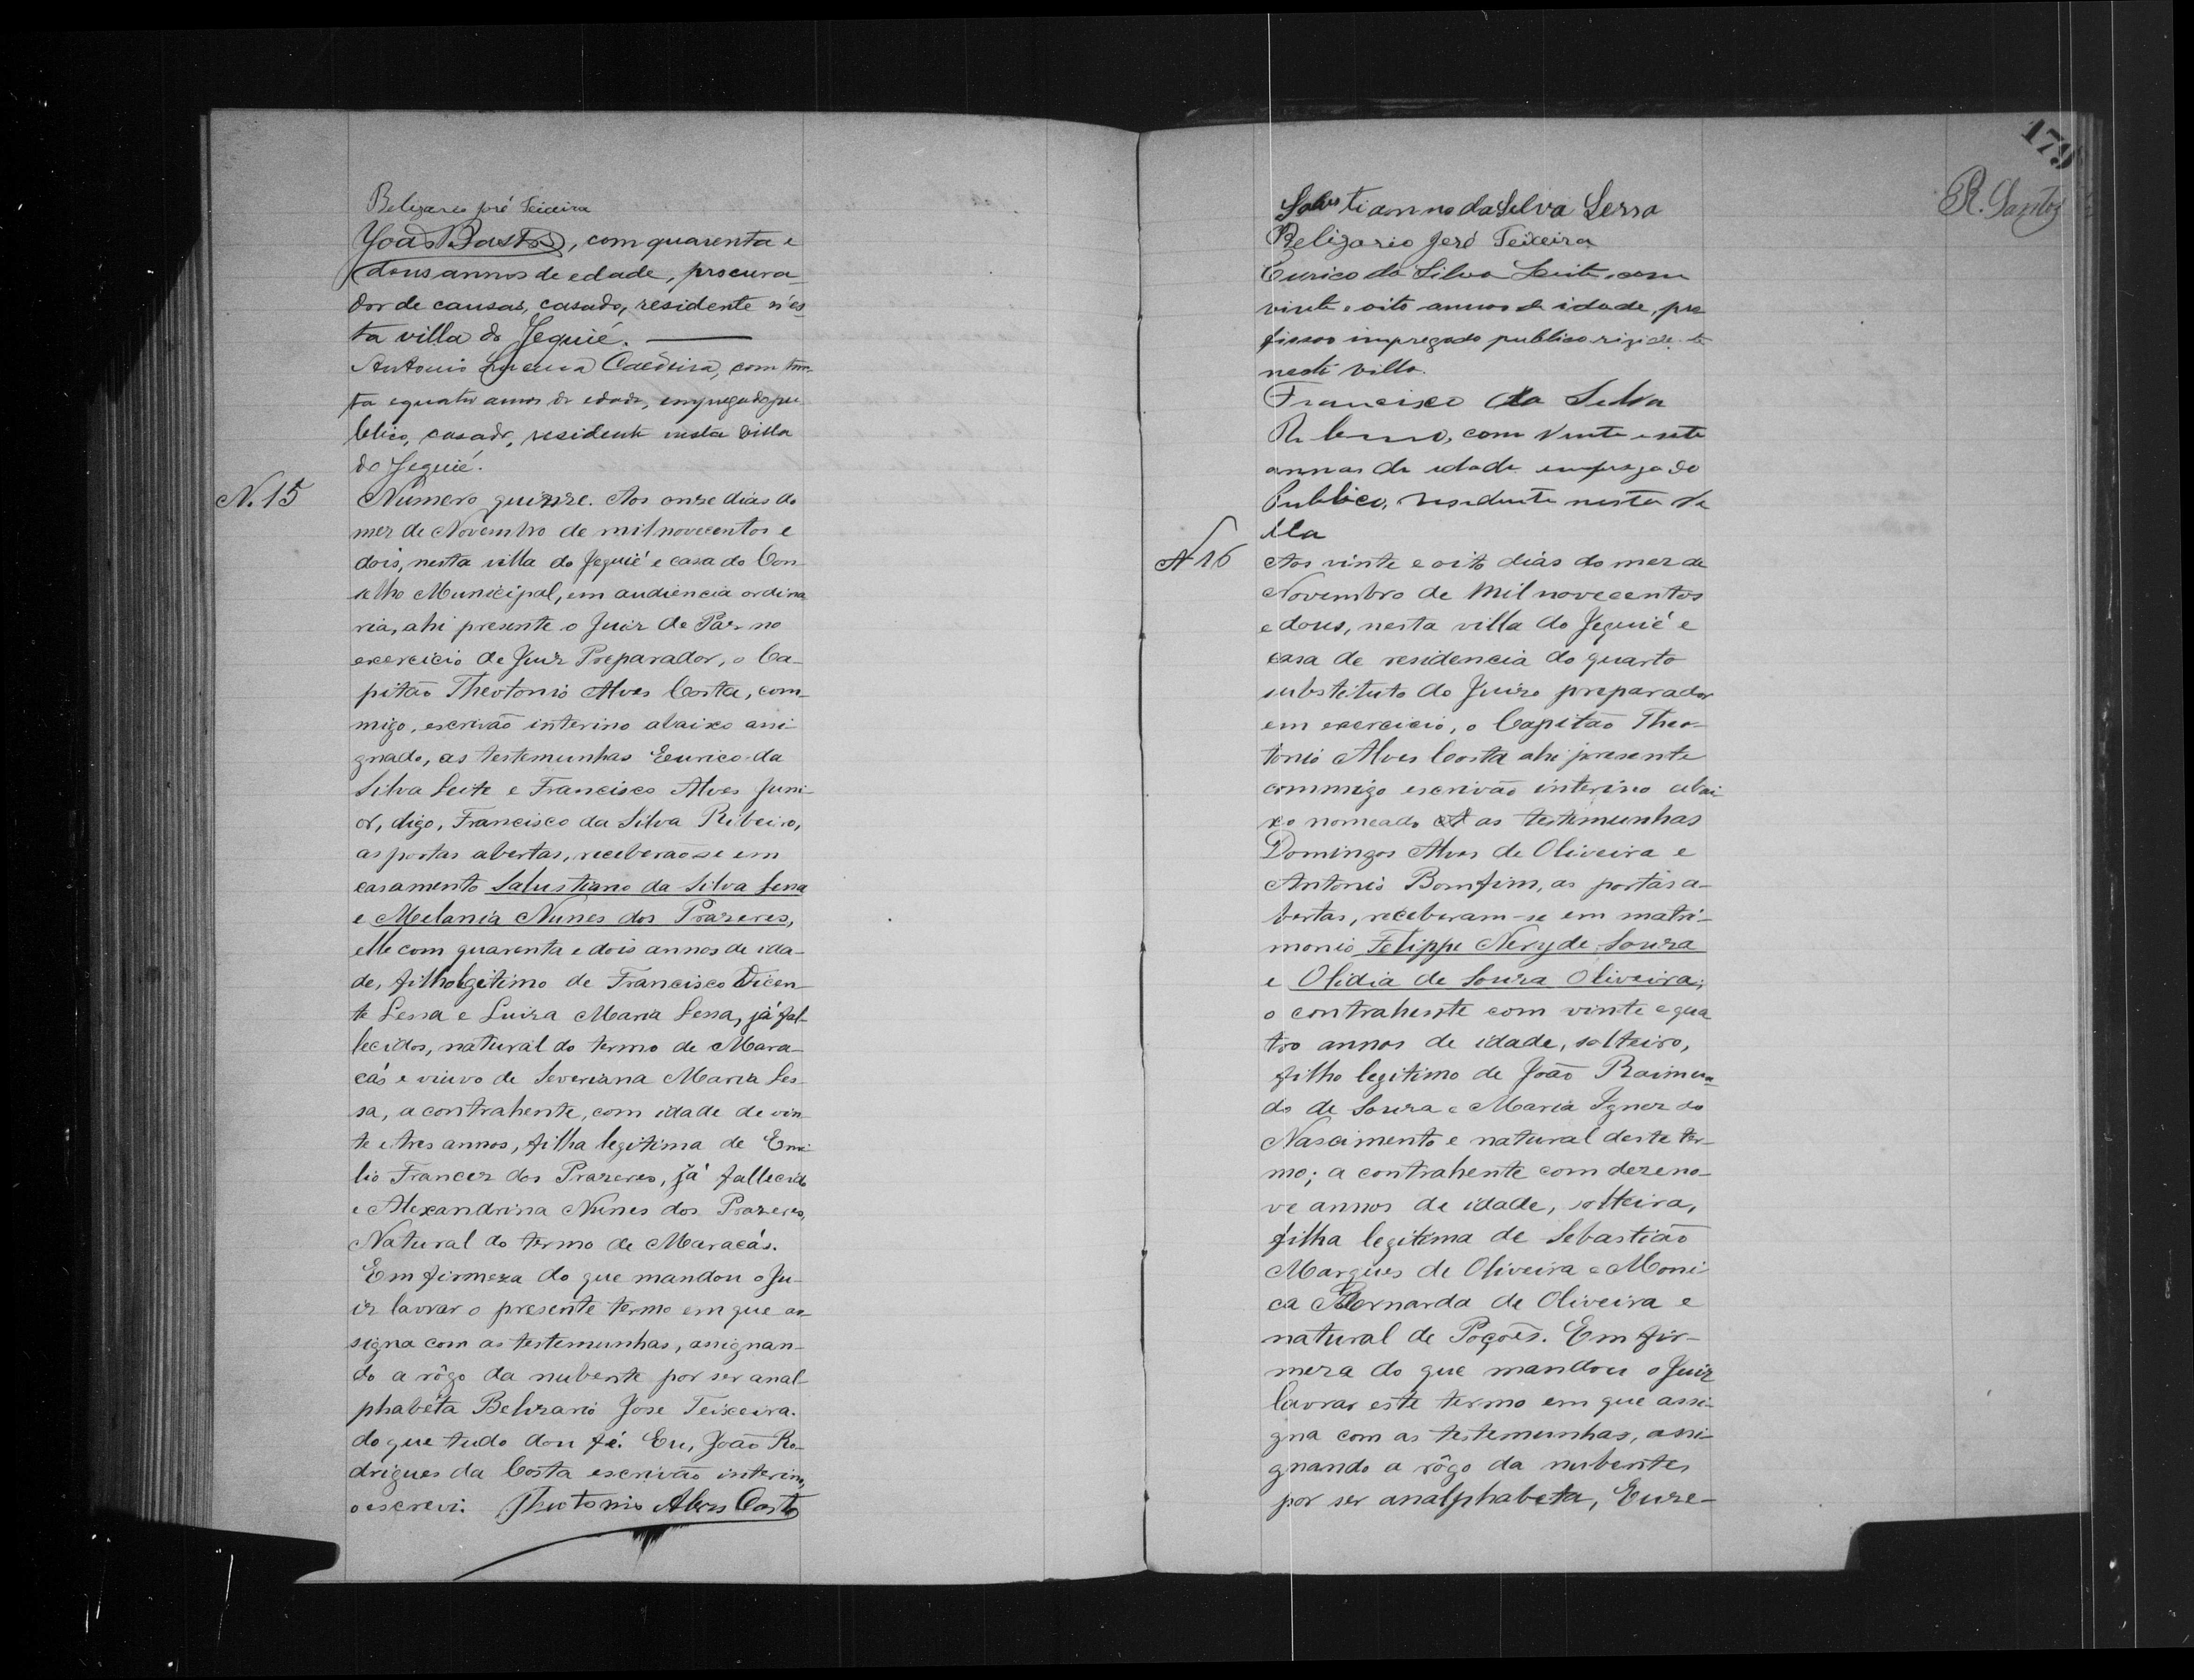 Belizario José Teixeira
João Bastos, com quarenta e
dous annos de edade, procura-
dor de causas, casado, residente n'es-
ta villa de Jequié.
Antonio Lucena Caldeira, com trin-
ta e quatro annos de edade, empregado pu-
blico, casado, residente nesta villa
de Jequié.
N. 15
Numero quinze. Aos onze dias do
mez de Novembro de mil novecentos e
dois, nesta villa do Jequié e casa do Con-
selho Municipal, em audiencia ordina-
ria, ahi presente o Juiz de Paz no
exercicio de Juiz Preparador, o Ca-
pitão Theotonio Alves Costa, com-
migo, escrivão interino abaixo assi-
gnado, as testemunhas Eurico da
Silva Leite e Francisco Alves Juni-
or, digo, Francisco da Silva Ribeiro,
as portas abertas, receberão-se em
casamento Salustiano da Silva Lessa
e Melania Nunes dos Prazeres,
elle com quarenta e dois annos de ida-
de, filho legitimo de Francisco Vicen-
te Lessa e Luiza Maria Lessa, já fal-
lecidos, natural do termo de Mara-
cás e viuvo de Severiana Maria Les-
sa, a contrahente, com idade de vin-
te e tres annos, filha legitima de Emi-
lio Francez dos Prazeres, já fallecido
e Alexandrina Nunes dos Prazeres,
Natural do termo de Maracás.
Em firmeza do que mandou o Ju-
iz lavrar o presente termo em que as-
signa com as testemunhas, assignan-
do a rôgo da nubente por ser anal-
phabeta Belizario Jose Teixeira.
do que tudo dou fé. Eu, João Ro-
drigues da Costa escrivão interino,
o escrevi. Theotonio Alves Costa
179
R. Santos
Salustianno da Silva Lessa
Belizario José Teixeira
Eurico da Silva Leite, com
vinte e oito annos de idade, pro
fissão impregado publico rizidente
nesta villa.
Francisco da Silva
Ribeiro, com vinte e sete
annos de idade empregado
Publico, residente nesta vi
lla
N 16
Aos vinte e oito dias do mez de
Novembro de mil novecentos
e dous, nesta villa do Jequié e
casa de residencia do quarto
substituto do Juizo preparador
em exercicio, o Capitão Theo-
tonio Alves Costa ahi presente
commigo escrivão interino abai-
xo nomeado as testemunhas
Domingos Alves de Oliveira e
Antonio Bomfim, as portas a-
bertas, receberam-se em matri-
monio Felippe Nery de Souza
e Olidia de Souza Oliveira;
o contrahente com vinte e qua
tro annos de idade, solteiro,
filho legitimo de João Raimun-
do de Souza e Maria Ignez do
Nascimento e natural deste ter-
mo; a contrahente com dezeno-
ve annos de idade, solteira,
filha legitima de Sebastião
Marques de Oliveira e Moni-
ca Bernarda de Oliveira e
natural de Poções. Em fir-
meza do que mandou o Juiz
lavrar este termo em que assi-
gna com as testemunhas, assi-
gnando a rôgo da nubentes
por ser analphabeta, Euze-